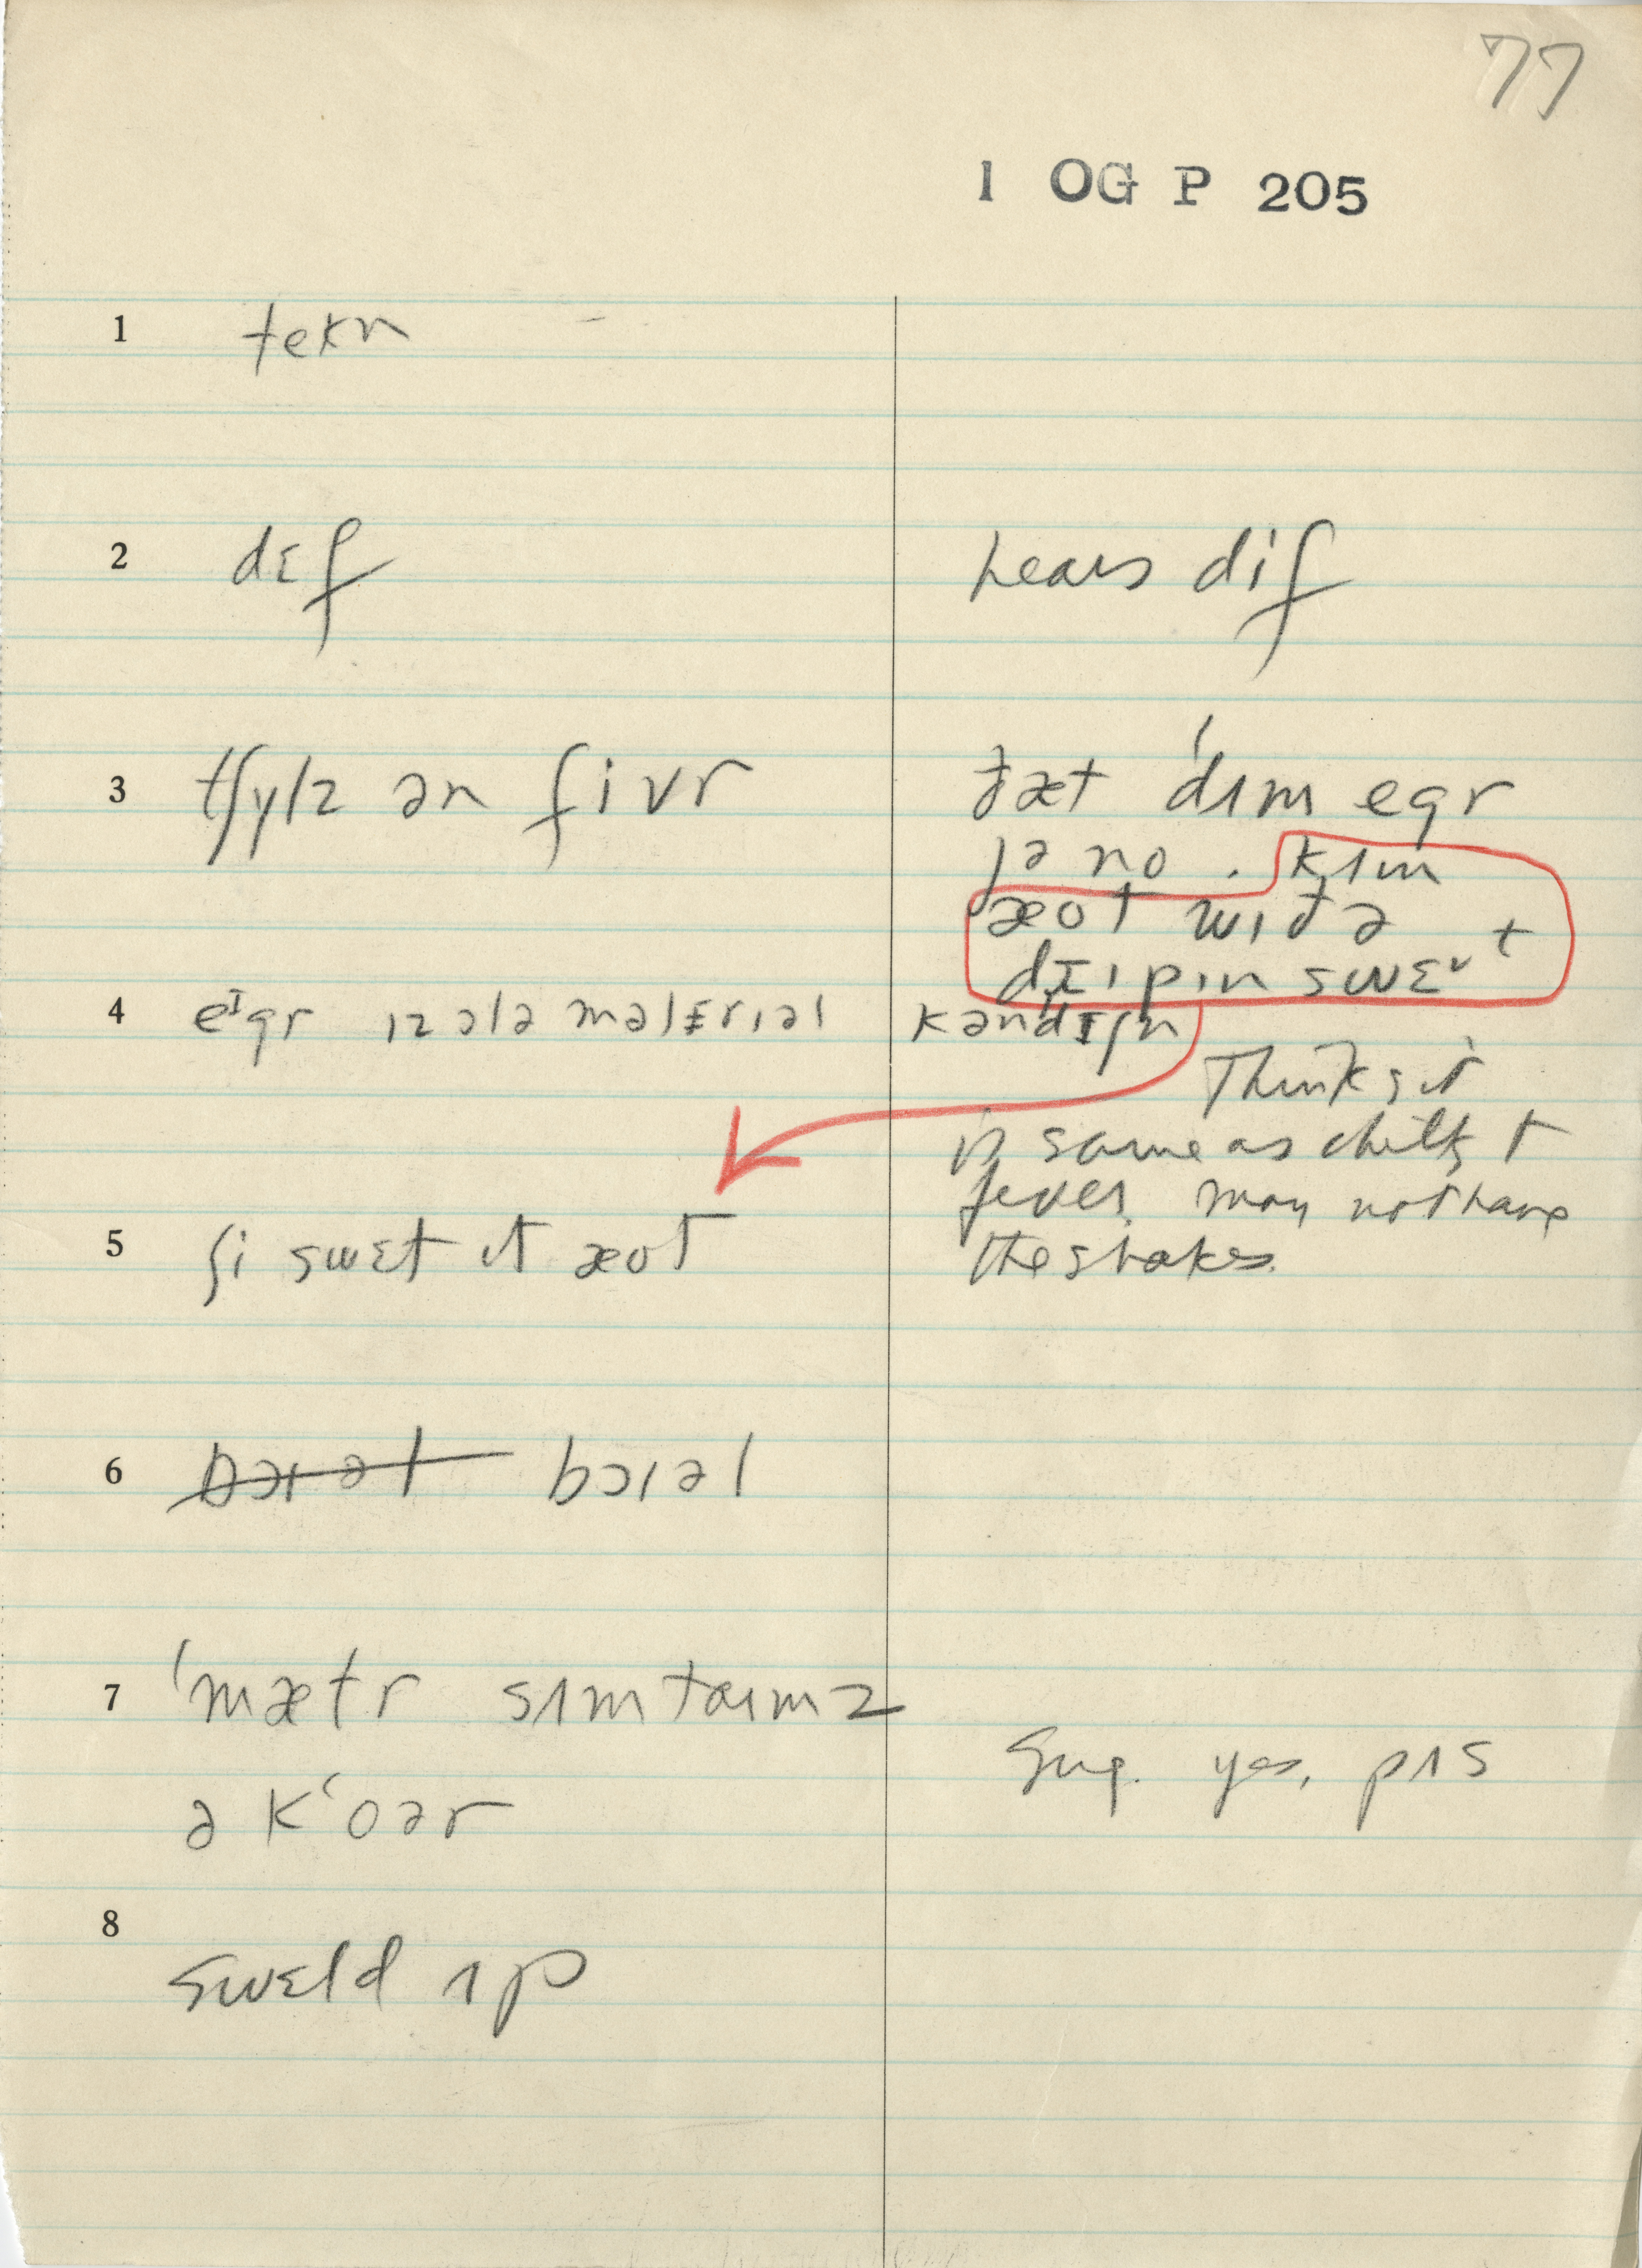 77
1 OG P 205
1 tekn
2 dɛf
hears dif
3 tʃɪlz ən fivr
ðæt dʌm egr
jə no. kʌm
æot wɪð ə
dɪipɪn swɛt
4 eɪgr ɪz ələ məlɛrɪəl kəndɪʃn
Thinks it
is same as chills +
fever, may not have
the shakes.
5 ʃi swɛt ɪt æot
6 bɔɪəl
7 'mætr sʌmtaɪmz
Sug. yes, pʌs
ə k'oər
8
swɛld ʌp